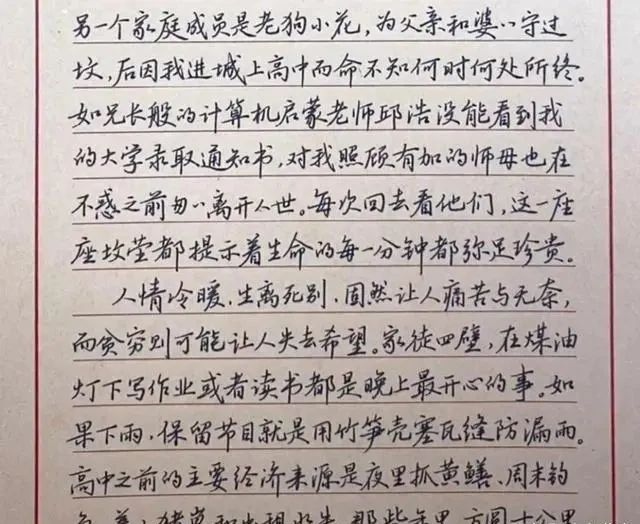 另一个家庭成员是老狗小花，为父亲和婆婆守过
坟，后因我进城上高中而命不知何时何处所终。
如兄长般的计算机启蒙老师邱浩没能看到我
的大学录取通知书，对我照顾有加的师母也在
不惑之前匆匆离开人世。每次回去看他们，这一座
座坟茔都提示着生命的每一分钟都弥足珍贵。
人情冷暖，生离死别，固然让人痛苦与无奈，
而贫穷则可能让人失去希望。家徒四壁，在煤油
灯下写作业或者读书都是晚上最开心的事。如
果下雨，保留节目就是用竹笋壳塞瓦缝防漏雨。
高中之前的主要经济来源是夜里抓黄鳝、周末钓